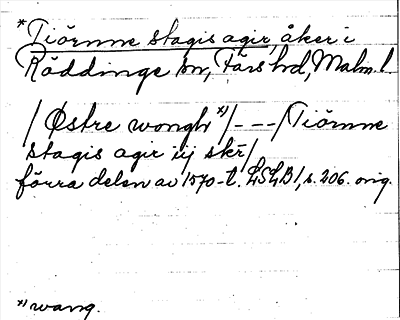 *Tiörnne stagis agir, åker i
Röddinge sn, Färs hd, Malm. l.
/Østre wongh *)/---/Tiörnne
stagis agir iij skr/
förra delen av 1570-t. LSLB1, s. 206. orig.
*) wang.